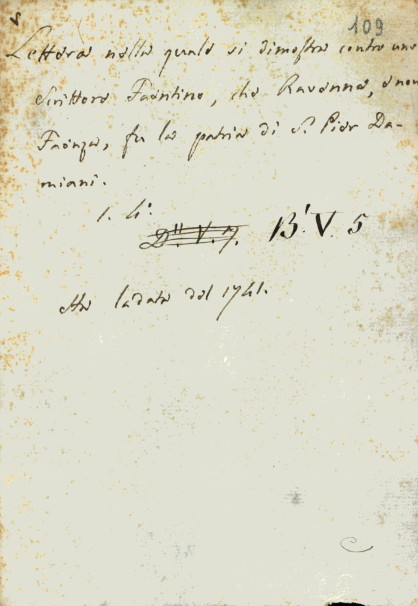 109
Lettera nella quale si dimostra contro uno
Scrittore Faentino, che Ravenna, e non
Faenza, fu la patria di S. Pier Da-
miani.
1. 4°.
D'' V. 7. B' V. 5
Ha la data del 1741.